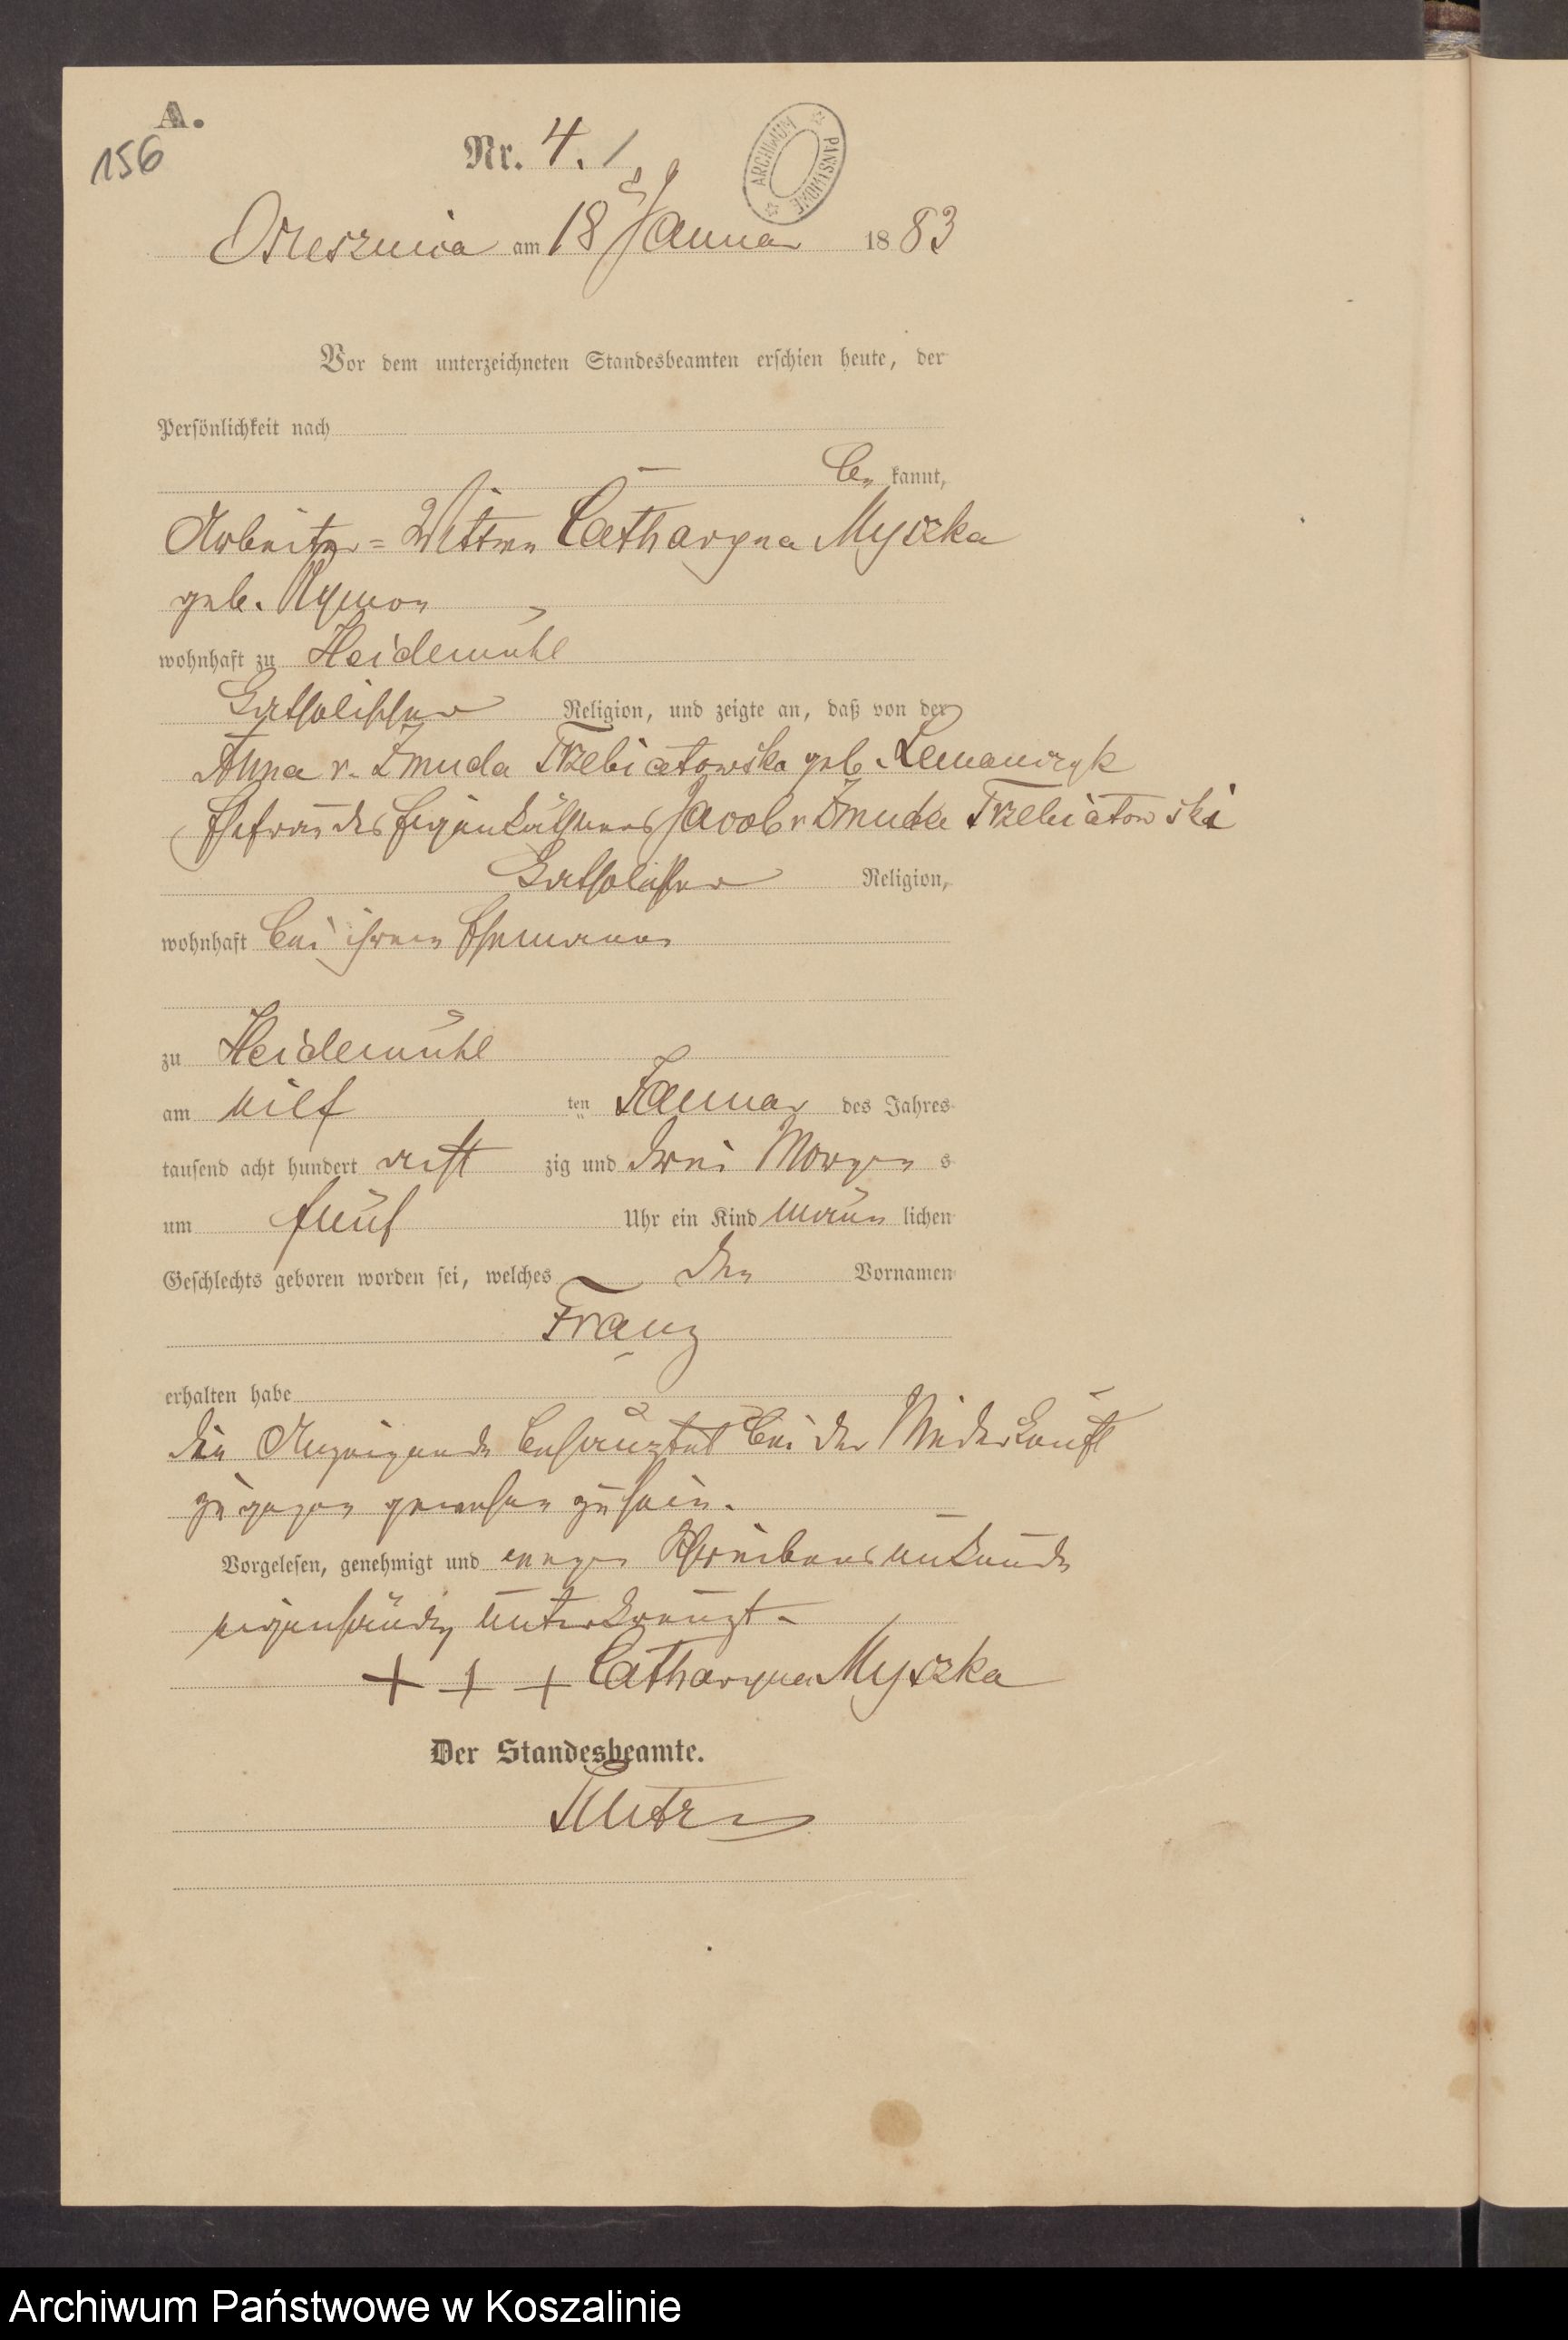 A.
156
Nr. 4.
ARCHIWUM PAŃSTWOWE
am 18 Januar 1883
Vor dem unterzeichneten Standesbeamten erschien heute, der
Persönlichkeit nach
be kannt,
Arbeiter=Wittwe Catharyna Myszka
geb. Rymon
wohnhaft zu Heidemühl
katholischer Religion, und zeigte an, daß von der
Anna v. Zmuda Trzebiatowska geb. Lemanczyk
Ehefrau des Eigenkäthners Jacob v Zmuda Trzebiatowski
katholischer Religion,
wohnhaft bei ihrem Ehemanne
zu Heidemühl
am eilf ten Januar des Jahres
tausend acht hundert acht zig und drei Morgen s
um fünf Uhr ein Kind männ lichen
Geschlechts geboren worden sei, welches den Vornamen
Franz
erhalten habe
die Anzeigende behauptet bei der Niederkunft
zugegen gewesen zu sein.
Vorgelesen, genehmigt und wegen Schreibensunkunde
eigenhändig unterkreuzt.
+ + + Catharyna Myszka
Der Standesbeamte.
Archiwum Państwowe w Koszalinie